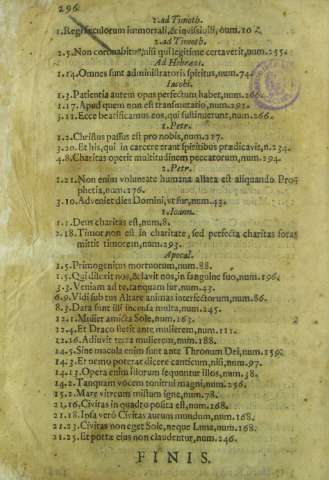 296.
1. ad Timoth.
1. Regi sæculorum immortali, & invisibili, num. 10
2. ad Timoth.
2. 5. Non coronabitur, nisi qui legitime certaverit, num. 255.
Ad Hebræos.
1. 14. Omnes sunt administratorii spiritus, num. 74.
Iacobi.
1. 3. Patientia autem opus perfectum habet, num. 266.
1. 17. Apud quem non est transmutatio, num. 292.
3. 11. Ecce beatificamus eos, qui sustinuerunt, num. 266.
1. Petr.
1. 2. Christus passus est pro nobis, num. 217.
3. 20. Et his, qui in carcere erant spiritibus prædicavit, n. 234.
4. 8. Charitas operit multitudinem peccatorum, num. 294.
2. Petr.
1. 21. Non enim voluntate humana allata est aliquando Pro-
phetia, num. 276.
3. 10. Adveniet dies Domini, ut fur, num. 43.
1. Ioann.
1. 1. Deus charitas est, num. 8.
2. 18. Timor non est in charitate, sed perfecta charitas foras
mittit timorem, num. 293.
Apocal.
1. 5. Primogenitus mortuorum, num. 88.
1. 5. Qui dilexit nos, & lavit nos, in sanguine suo, num. 196.
3. 3. Veniam ad te, tanquam fur, num. 43.
6. 9. Vidi subtus Altare animas interfectorum, num. 86.
8. 3. Data sunt illi incensa multa, num. 245.
12. 1. Mulier amicta Sole, num. 163.
12. 4. Et Draco stetit ante mulierem, num. 111.
12. 16. Adiuvit terra mulierem, num. 188.
14. 5. Sine macula enim sunt ante Thronum Dei, num. 159.
14. 3. Et nemo poterat dicere canticum, num. 97.
14. 13. Opera enim illorum sequuntur illos, num. 38.
14. 2. Tanquam vocem tonitrui magni, num. 256.
15. 2. Mare vitreum mistum igne, num. 78.
21. 16. Civitas in quadro posita est, num. 168.
21. 18. Ipsa verò Civitas aurum mundum, num. 168.
21. 23. Civitas non eget Sole, neque Luna, num. 168.
21. 25. Et portæ eius non claudentur, num. 246.
FINIS.